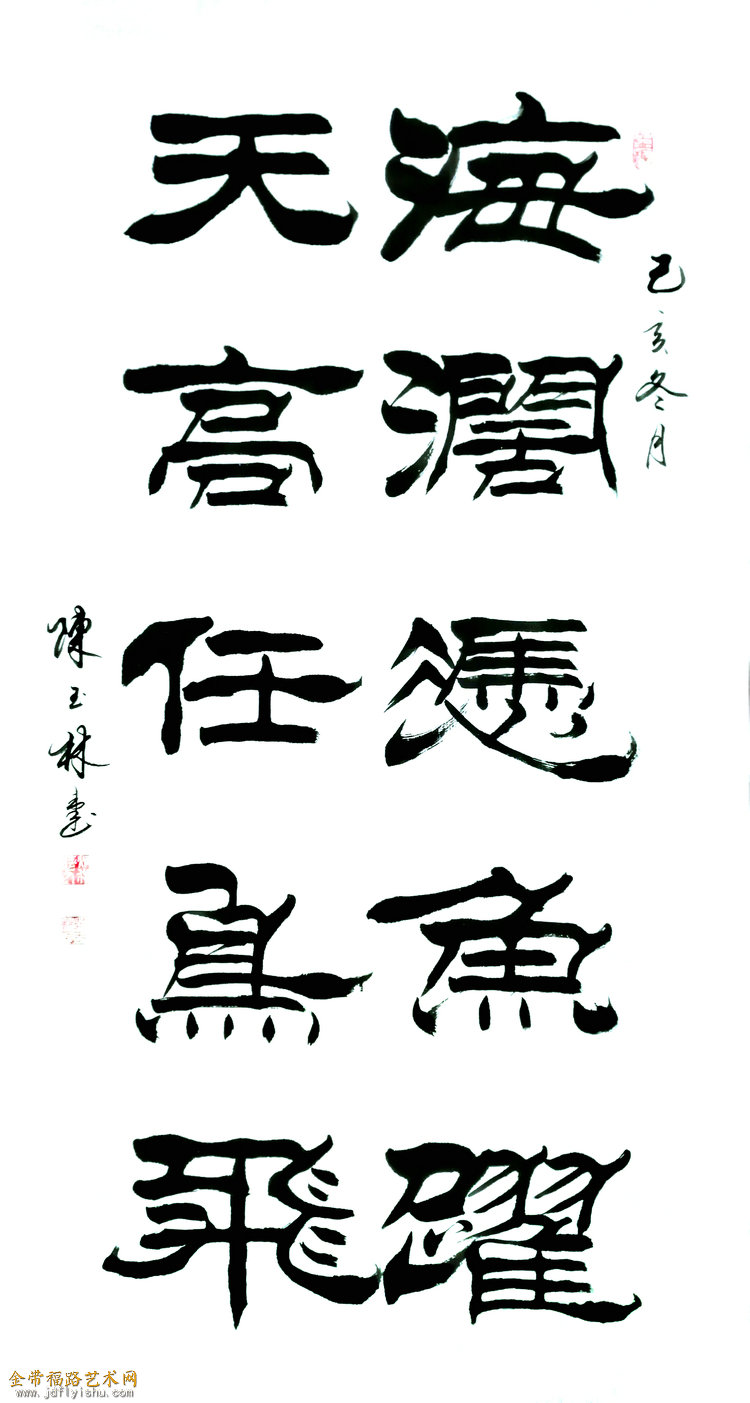 己亥冬月
海濶憑魚躍
天高任鳥飛
陳玉林書
金带福路艺术网
www.jdflyishu.com